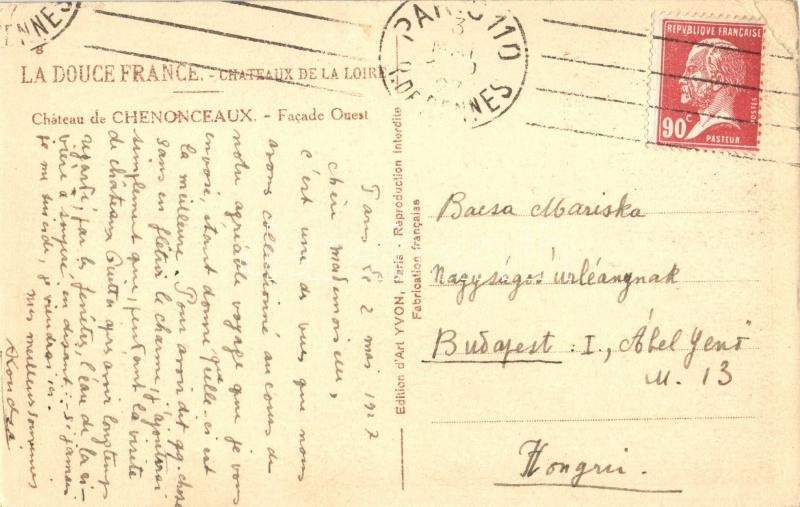 LA DOUCE FRANCE. - CHATEAUX DE LA LOIRE
Château de CHENONCEAUX. - Façade Ouest
PARIS 110
REPVBLIQUE FRANÇAISE
90c
POSTES
PASTEUR
Paris le 2 mai 1927
chère mademoiselle,
c'est une de vues que nous
avons collectionné au cours de
notre agréable voyage que je vous
envoie, étant donné que celle-ci est
la meilleure. Pour avoir dit qq. chose
sans en flétrir le charme, j'ajouterai
simplement que, pendant la visite
du château après avoir longtemps
regardé, par les fenêtres, l'eau de la ri-
vière a en disant: Si jamais
je me suicide, je viendrai ici.
mes meilleurs souvenirs
Edition d'Art YVON, Paris - Reproduction interdite
Fabrication française
Bacsa Mariska
Nagyságos úrleánynak
Budapest I., Ábel Jenő
u. 13
Hongrie.